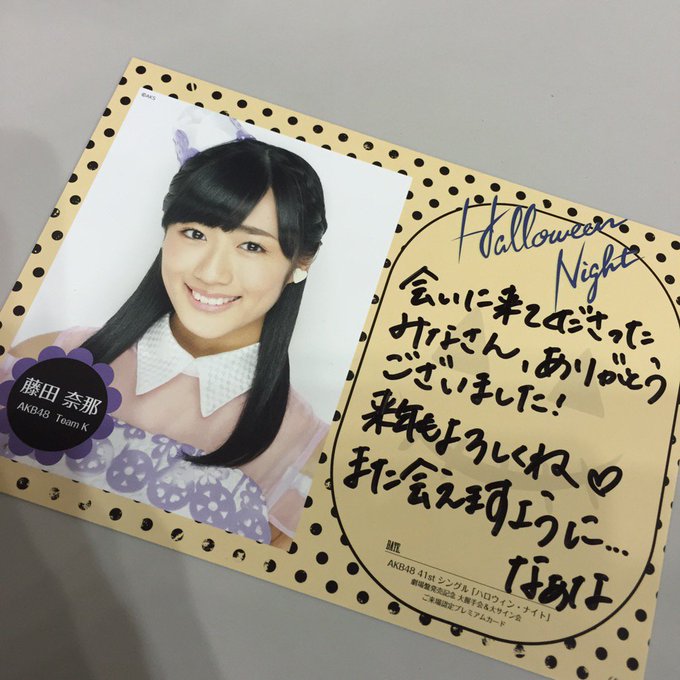 ©AKS
藤田 奈那
AKB48 Team K
Halloween
Night
会いに来てくださった
みなさん、ありがとう
ございました!
来年もよろしくね♡
また会えますように...
なぁな
DATE.
AKB48 41st シングル「ハロウィン・ナイト」
劇場盤発売記念 大握手会&大サイン会
ご来場認定プレミアムカード